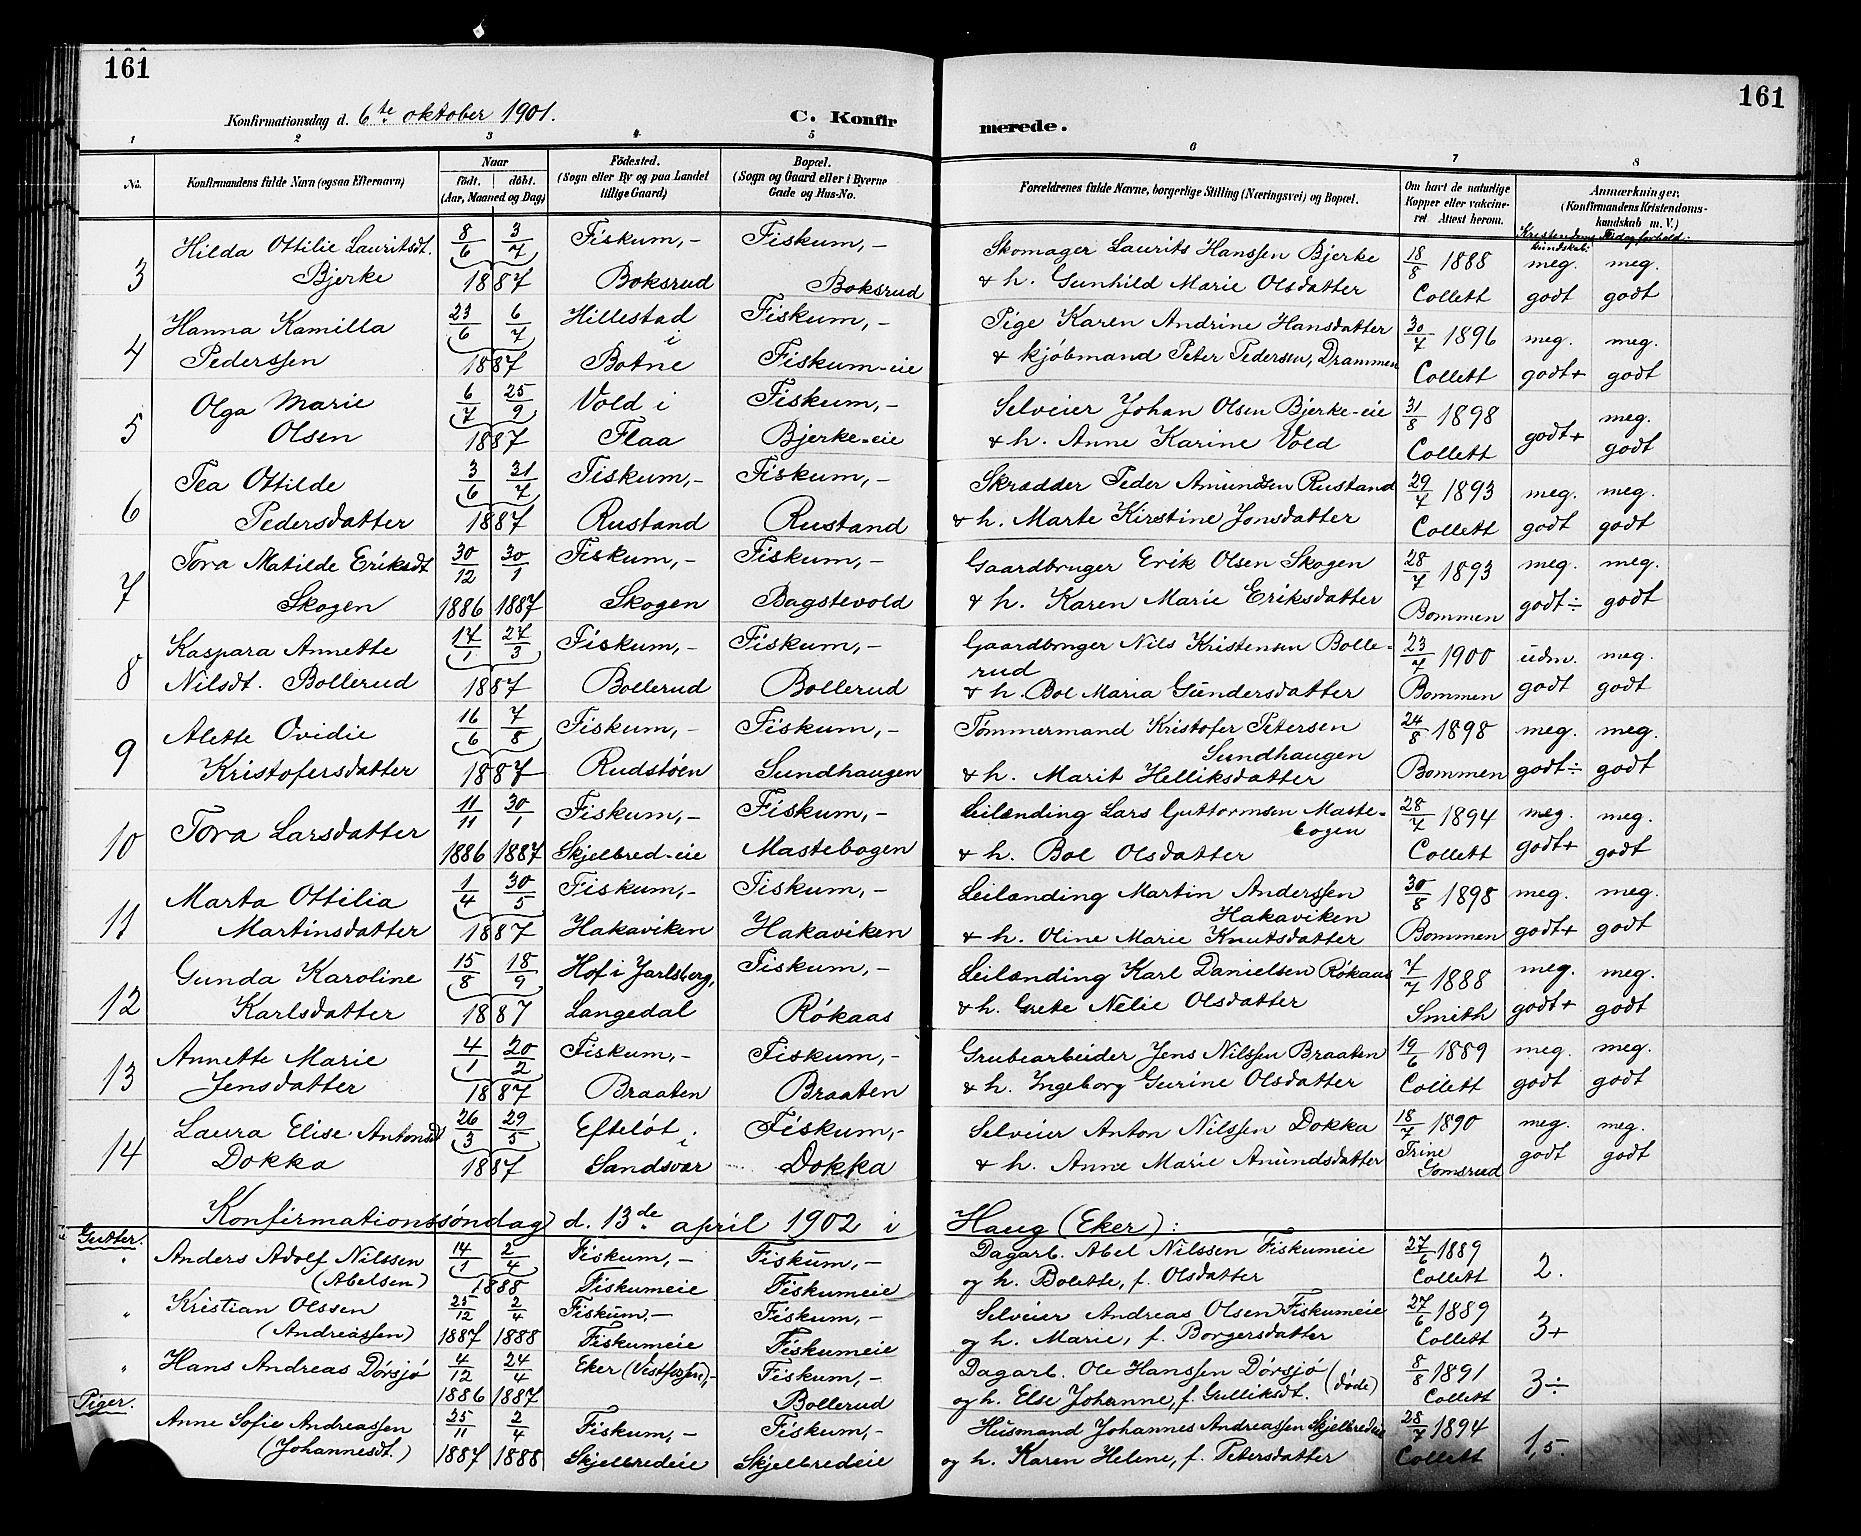 161
161
Konfirmationsdag d. 6te oktober 1901.
C. Konfir
merede.
1 2 3 4 5 6 7 8
No. Konfirmandens fulde Navn (ogsaa Efternavn) Naar Födested. Bopæl. Forældrenes fulde Navne, borgerlige Stilling (Næringsvei) og Bopæl. Om havt de naturlige Anmærkninger.
födt. döbt. (Sogn eller By og paa Landet (Sogn og Gaard eller i Byerne Kopper eller vakcine- (Konfirmandens Kristendoms-
(Aar, Maaned og Dag) tillige Gaard) Gade og Hus-No. ret Attest herom. kundskab m. V.)
Kristendoms kundskab: Flid og forhold:
Hilda Ottilie Lauritsdt. 8/6 3/7 Fiskum,- Fiskum,- Skomager Laurits Hanssen Bjerke 18/8 1888 meg. meg.
3 Bjerke 1887 Boksrud Boksrud & h. Gunhild Marie Olsdatter Collett godt godt
Hanna Kamilla 23/6 6/7 Hillestad i Fiskum,- Pige Karen Andrine Hansdatter 30/7 1896 meg. meg.
4 Pederssen 1887 Botne Fiskum-eie & kjöbmand Peter Pedersen, Drammen Collett godt+ godt
Olga Marie 6/7 25/9 Vold i Fiskum,- Selveier Johan Olsen Bjerke-eie 31/8 1898 meg.
5 Olsen 1887 Flaa Bjerke-eie & h. Anne Karine Vold Collett godt+ godt
Tea Ottilde 3/6 31/7 Fiskum,- Fiskum,- Skrædder Peder Amundsen Rustand 29/7 1893 meg. meg.
6 Pedersdatter 1887 Rustand Rustand & h. Marte Kirstine Jonsdatter Collett godt godt
Tora Matilde Eriksdt 30/12 30/1 Fiskum,- Fiskum,- Gaardbruger Erik Olsen Skogen 28/7 1893 meg. meg.
7 Skogen 1886 1887 Skogen Bagstevold & h. Karen Marie Eriksdatter Bommen godt÷ godt
Kaspara Annette 17/1 27/3 Fiskum,- Fiskum,- Gaardbruger Nils Kristensen Bolle-
rud 23/7 1900 udm. meg.
8 Nilsdt. Bollerud 1887 Bollerud Bollerud & h. Bol Maria Gundersdatter Bommen godt godt
Alette Ovidie 16/6 7/8 Fiskum,- Fiskum,- Tömmermand Kristofer Petersen 24/8 1898 meg. meg.
Sundhaugen
9 Kristofersdatter 1887 Rudstöen Sundhaugen & h. Marit Helliksdatter Bommen godt÷ godt
11/11 30/1 Fiskum,- Fiskum,- Leilænding Lars Guttormsen Maste-
bogen 28/7 1894 meg. meg.
10 Tora Larsdatter 1886 1887 Skjelbred-eie Mastebogen & h. Bol Olsdatter Collett godt+ godt
Marta Ottilia 1/4 30/5 Fiskum,- Fiskum,- Leilænding Martin Anderssen 30/8 1898 meg. meg.
Hakaviken
11 Martinsdatter 1887 Hakaviken Hakaviken & h. Oline Marie Knutsdatter Bommen godt+ godt
Gunda Karoline 15/8 18/9 Hof i Jarlsberg, Fiskum,- Leilænding Karl Danielsen Rökaas 7/7 1888 meg. meg.
12 Karlsdatter 1887 Langedal Rökaas & h. Grete Nelie Olsdatter Smith godt+ godt
Annette Marie 4/1 20/2 Fiskum,- Fiskum,- Grubearbeider Jens Nilssen Braaten 19/6 1889 meg. meg.
13 Jensdatter 1887 Braaten Braaten & h. Ingeborg Gurine Olsdatter Collett godt godt
Laura Elise Antonsdt 26/3 29/5 Efteløt i Fiskum,- Selveier Anton Nilssen Dokka 18/7 1890 meg. meg.
14 Dokka 1887 Sandsvær Dokka & h. Anne Marie Amundsdatter Trine Gomsrud godt godt
Konfirmationssöndag d. 13de april 1902 i Haug (Eker):
Gutter.
" Anders Adolf Nilssen 14/1 2/4 Fiskum,- Fiskum,- Dagarb. Abel Nilssen Fiskumeie 27/6 1889 2.
(Abelsen) 1888 Fiskumeie Fiskumeie og h. Bolette, f. Olsdatter Collett
" Kristian Olssen 25/12 2/4 Fiskum,- Fiskum,- Selveier Andreas Olsen Fiskumeie 27/6 1889 3+
(Andreassen) 1887 1888 Fiskumeie Fiskumeie og h. Marie, f. Borgersdatter Collett
" Hans Andreas Dørsjø 4/12 24/4 Eker (Vestfossen),- Fiskum,- Dagarb. Ole Hanssen Dørsjø 8/8 1891 3÷
1886 1887 Bollerud og h. Else Johanne, f. Gulliksdt. (døde) Collett
Piger.
Anne Sofie Andreassen 25/11 2/4 Fiskum,- Fiskum,- Husmand Johannes Andreassen Skjelbredeie 28/7 1894 1,5.
(Johannesdt.) 1887 1888 Skjelbredeie Skjelbredeie og h. Karen Helene, f. Petersdatter Collett